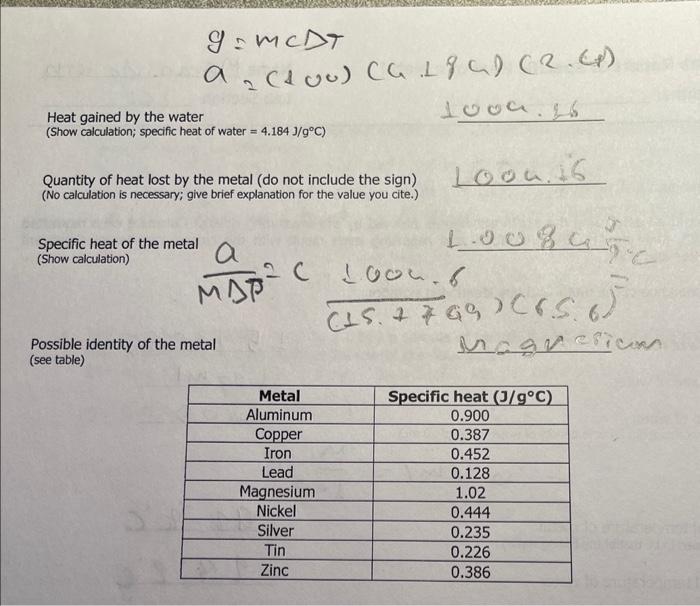 q = mcΔT
q = (100) (4.184) (2.4)
Heat gained by the water 1004.16
(Show calculation; specific heat of water = 4.184 J/g°C)
Quantity of heat lost by the metal (do not include the sign) 1004.16
(No calculation is necessary; give brief explanation for the value you cite.)
Specific heat of the metal 1.0084 J/g°C
(Show calculation) q/MΔT = C 1004.6/(15.1799)(65.6)
Possible identity of the metal Magnesium
(see table)
Metal Specific heat (J/g°C)
Aluminum 0.900
Copper 0.387
Iron 0.452
Lead 0.128
Magnesium 1.02
Nickel 0.444
Silver 0.235
Tin 0.226
Zinc 0.386